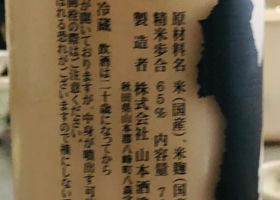 原材料名 米(国産)、米麹(国産
精米歩合 65% 内容量 7
製造者 株式会社 山本酒造
秋田県山本郡八峰町八森字
冷蔵 飲酒は二十歳になってから
が開いておりますが、中身が噴出す可
開栓の際はご注意ください。
ばれる恐れがございますので横にしない